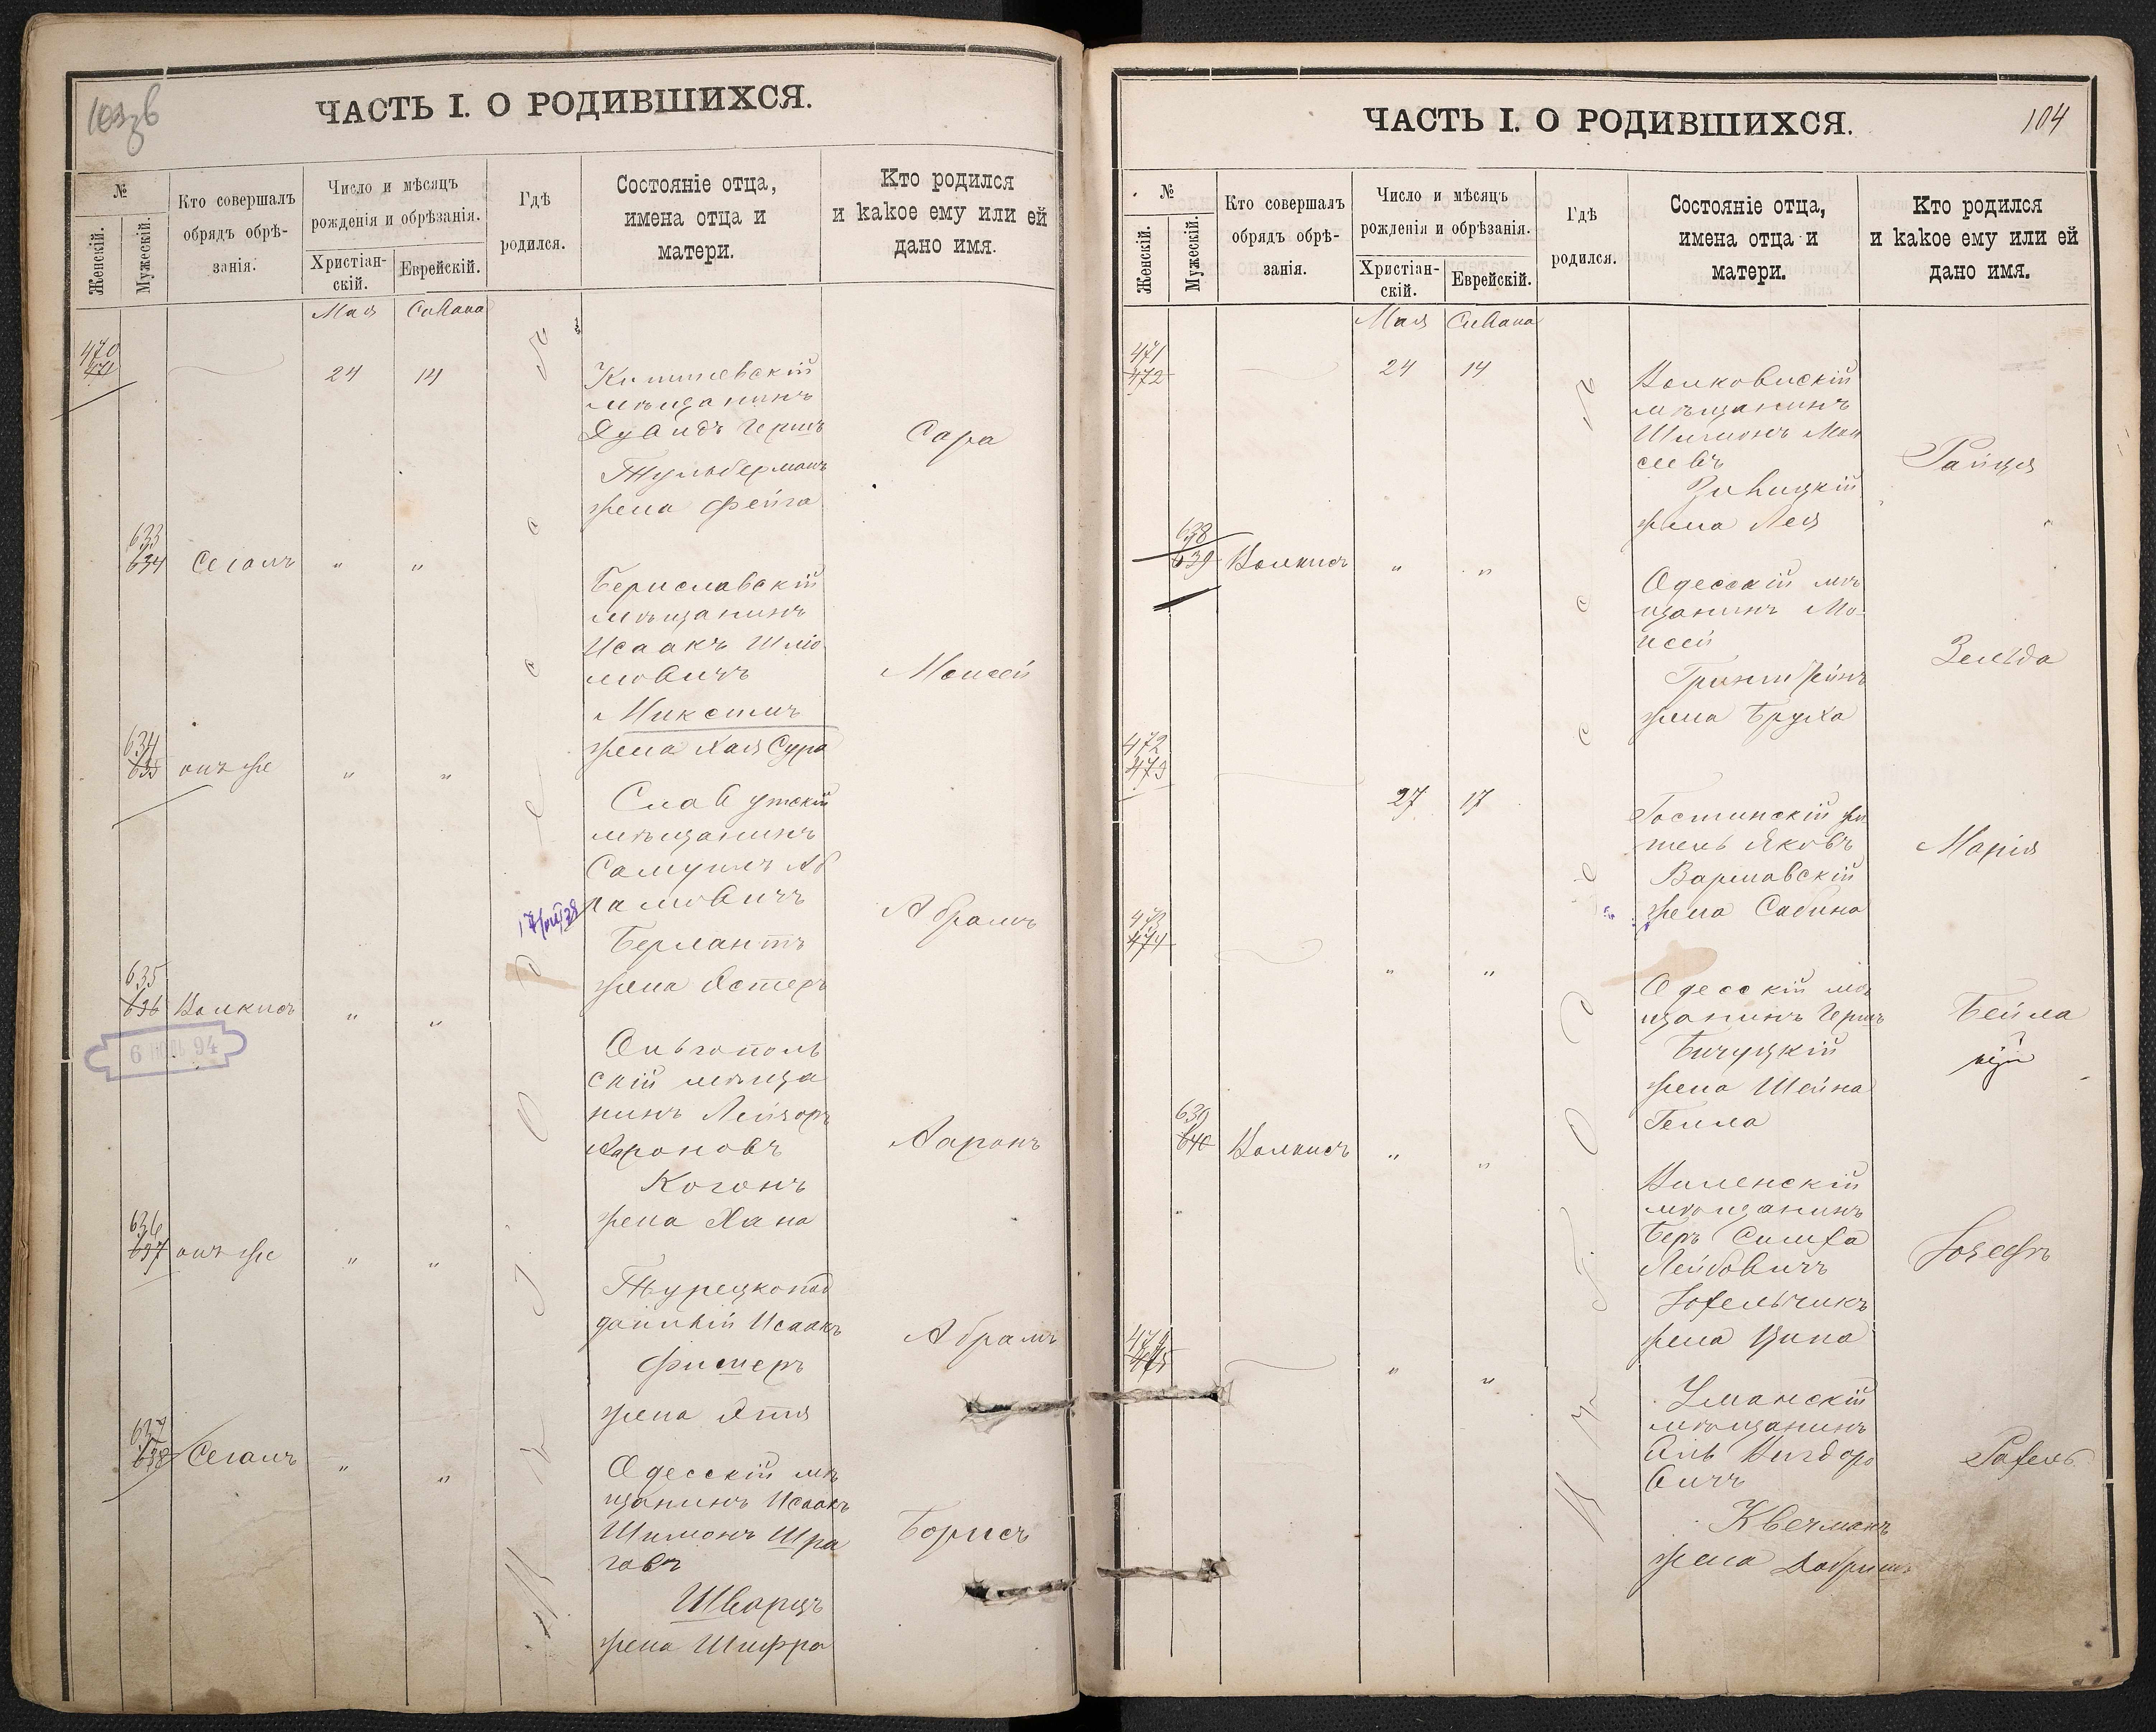 ЧАСТЬ I. О РОДИВШИХСЯ.
№
Женскій.
Мужескій.
Кто совершалъ
обрядъ обрѣ-
занія.
Число и мѣсяцъ
рожденія и обрѣзанія.
Христіан-
скій.
Еврейскій.
Гдѣ
родился.
Состояніе отца,
имена отца и
матери.
Кто родился
и какое ему или ей
дано имя.
Мая Сивана
470
471
24 14
мѣщанинъ
Дувидъ Гершъ
Тульберманъ
жена Фейга
Сара
633
634 Сегалъ " "
Бериславскій
мѣщанинъ
Исаакъ Шлио
мовичъ
жена Хая Сура
Моисей
634
635 онъ же " "
Славутскій
мѣщанинъ
Самуилъ Аб
рамовичъ
Берлантъ
жена Эстеръ
Абрамъ
635
636 Волкисъ " "
Ольгополь
скій мѣща
нинъ Лейзоръ
Ароновъ
Когонъ
жена Хана
Ааронъ
636
637 онъ же " "
Турецкопод
данный Исаакъ
Фишеръ
жена Этя
Абрамъ
637
638 Сегалъ " "
Одесскій мѣ
щанинъ Исаакъ
Шимонъ Шра
говъ
Шварцъ
жена Шифра
Борисъ
6 94
ЧАСТЬ I. О РОДИВШИХСЯ.
104
№
Женскій.
Мужескій.
Кто совершалъ
обрядъ обрѣ-
занія.
Число и мѣсяцъ
рожденія и обрѣзанія.
Христіан-
скій.
Еврейскій.
Гдѣ
родился.
Состояніе отца,
имена отца и
матери.
Кто родился
и какое ему или ей
дано имя.
Мая Сивана
471
472
24 14
Волковискій
мѣщанинъ
Шимонъ Мои
сеевъ
жена Лея
Райця
638
639 Волкисъ " "
Одесскій мѣ
щанинъ Мо-
исей
Гринштейнъ
жена Бруха
Зельда
472
473
27 17
Гостинскій жи
тель Яковъ
Варшавскій
жена Сабина
Марія
473
474
" "
Одесскій мѣ
щанинъ Гершъ
Бичуцкій
жена Шейна
Гепла
Бейла
639
640 Волкисъ " "
Виленскій
мѣщанинъ
Беръ Симха
Лейбовичъ
жена Ципа
Іозефъ
474
475
" "
Уманскій
мѣщанинъ
Вигдоро
вичъ
Квечманъ
жена Добришъ
Рахель